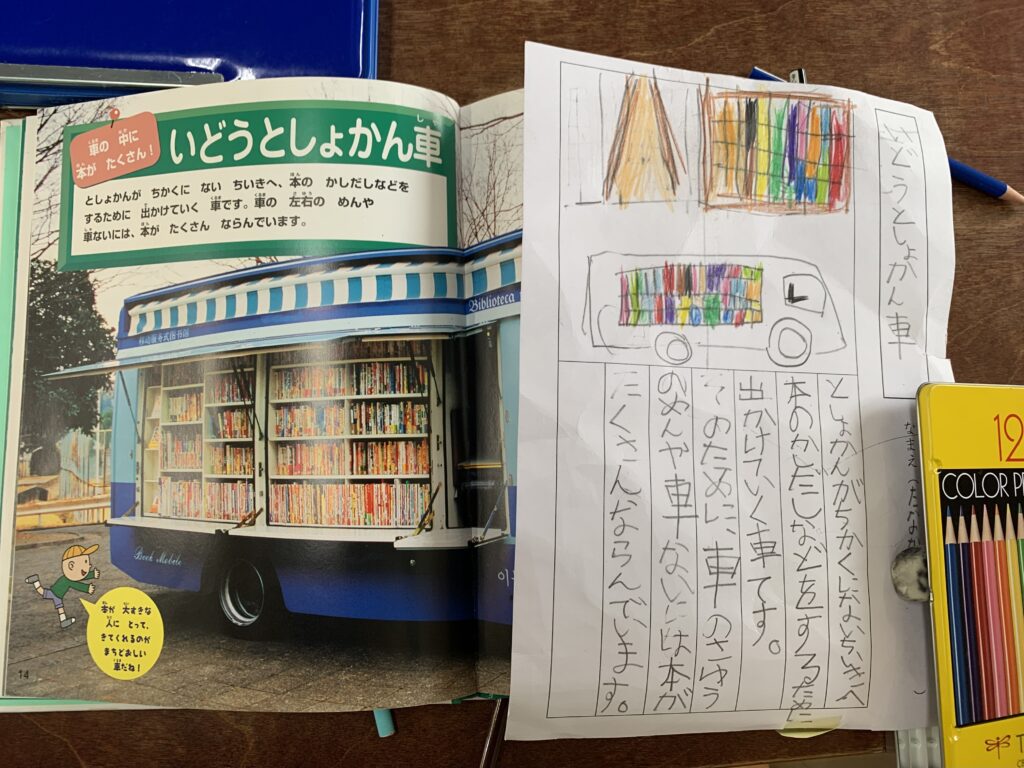 車の 中に
本が たくさん!
いどうとしょかん車
としょかんが ちかくに ない ちいきへ、本の かしだしなどを
するために 出かけていく 車です。車の 左右の めんや
車ないには、本が たくさん ならんでいます。
移动服务式图书馆
Biblioteca
Book Mobile
本が 大すきな
人に とって、
きてくれるのが
まちどおしい
車だね!
14
いどうとしょかん車
としょかんがちかくにないちいきへ
本のかしだしなどをするために
出かけていく車です。
そのために車のさゆう
のめんや車ないには本が
たくさんならんでいます。
なまえ(たなか
12
COLOR PE